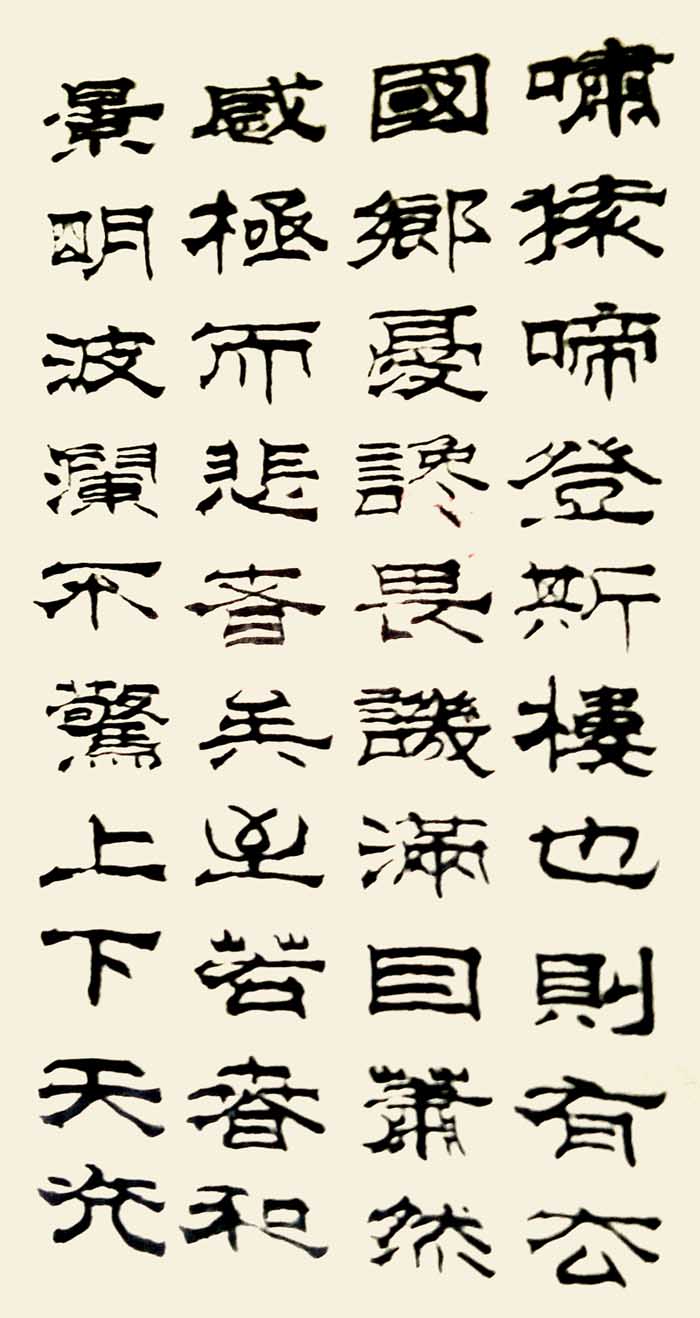 嘯猿啼登斯樓也則有去
國鄉憂讒畏譏滿目蕭然
感極而悲者矣至若春和
景明波瀾不驚上下天光